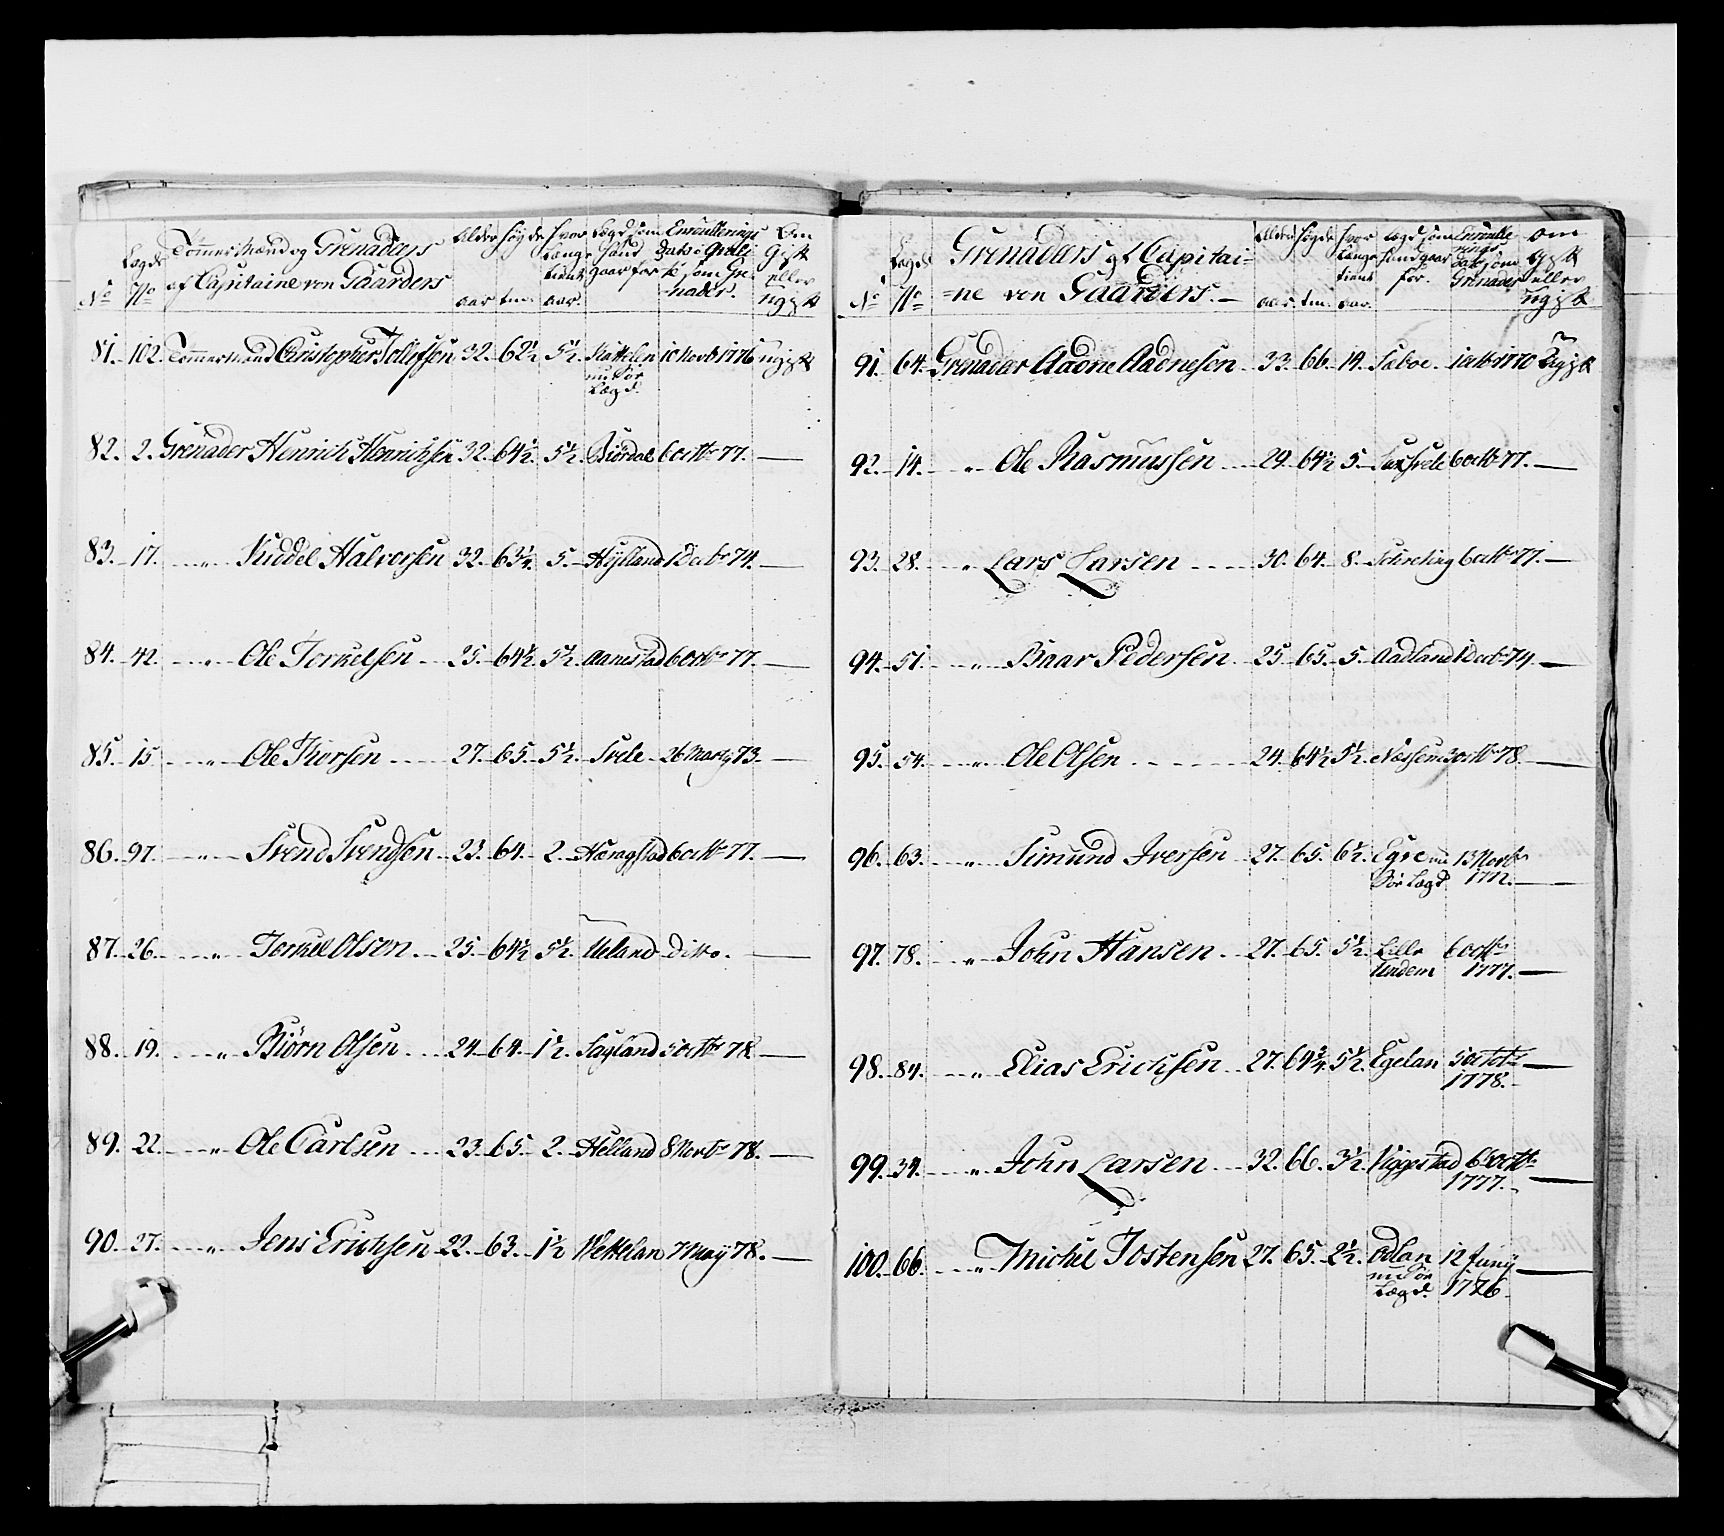 Lægds Tømmermænd og Grenaders Alder Høyde hvor Lægd som Enroullerings Om
No No af Capitaine von Gaarders længe hand Dato i Qvali- Gift
tient gaar for te som Gre- eller
aar. tm. aar. -nader. ugift
81. 102. Tømmermand Christopher Tollefsen 32. 62½ 5½ Kattelen 10 Novb 1776 ugift
nu Sør
Lægd.
82. 2. Grenader Henrich Henrichsen 32. 64½. 5½. Biørdal 6 octbr 77. —
83. 17. „ Kiddel Halvorsen 32. 63¼. 5. Hylland 1 Decbr 74. —
84. 42. „ Ole Torkelsen 25. 64½ 5½ Aanestad 6 octbr 77. —
85. 15 „ Ole Thorsen 27. 65. 5½. Svele 26 Marty 73. —
86. 97. „ Svend Svendsen 23. 64. 2. Hæragstad 6 octbr 77. —
87. 26. „ Torkel Olsen 25. 64½ 5½. Ueland Ditto. —
88. 19. „ Biørn Olsen 24. 64. 1½. Sagland 5 octbr 78. —
89. 22. „ Ole Carlsen 23. 65. 2. Helland 8 Novbr 78. —
90. 27. „ Jens Erichsen 22. 63. 1½ Vettelan 7 May 78. —
Lægds Grenaders af Capitai- Alder høyde hvor Lægd som Enroulle- om
No No =ne von Gaarders. — længe hand gaar rings Gift
tient for. Dato som eller
aar. tm. aar. Grenader ugift
91. 64. Grenader Aadne Aadnesen 33. 66. 14. Sæboe. 1 octbr 1770 Ugift
92. 14. „ Ole Rasmussen 29. 64½ 5. 6 octbr 77. —
93. 28. „ Lars Larsen 30. 64. 8. Schreling 6 octbr 77. —
94. 51. „ Baar Pedersen 25. 65. 5. Aadland 1 Decbr 74. —
95. 54. „ Ole Olsen 24. 64½ 5½. Næssem 3 octbr 78. —
96. 63. „ Simund Iversen 27. 65. 6½. Egre nu 13 Novbr
Sør Lægd 1772. —
97. 78. „ John Hansen 27. 65. 5½. Lille 6 octbr
Undem 1777. —
98. 84. „ Elias Erichsen 27. 64¾. 5½. Egelan 5 octbr
1778. —
99. 34. „ John Larsen 32. 66. 3½. Viggestad 6 octbr
1777. —
100. 66. „ Michel Tostensen 27. 65. 2½. Odlan 12 Junij
nu Sør
Lægd. 1776. —